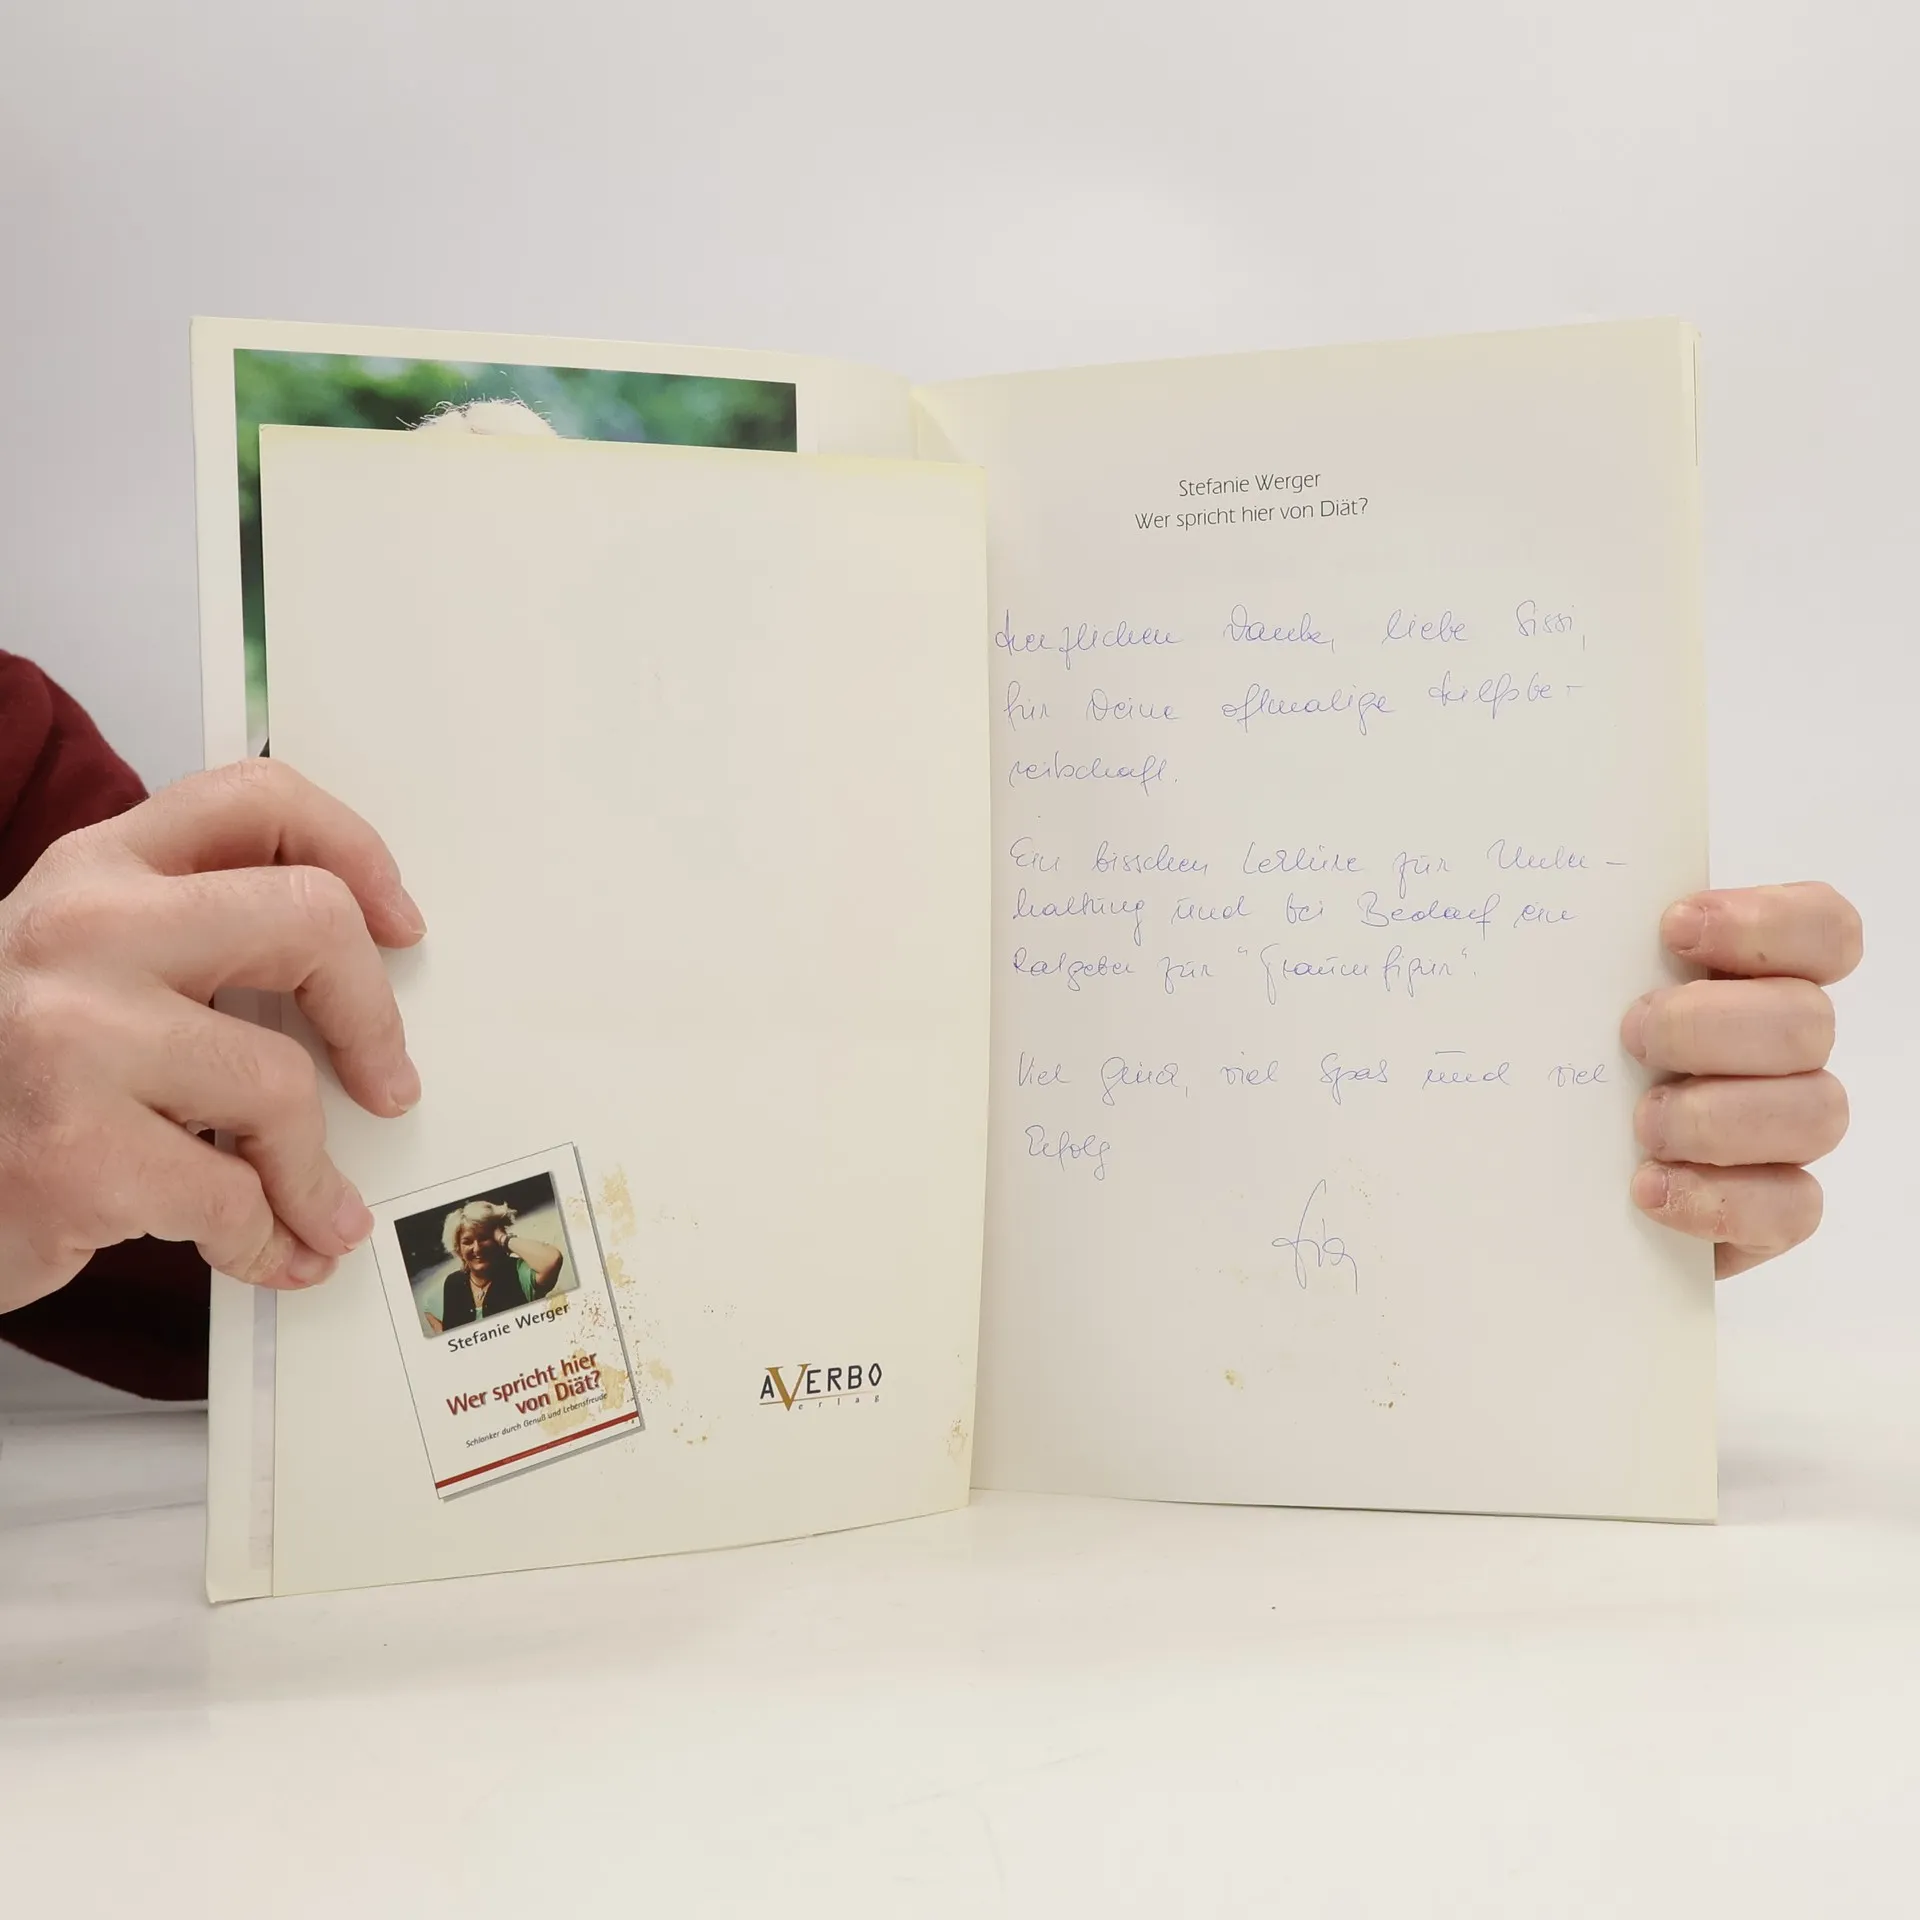 Stefanie Werger
Wer spricht hier
von Diät?
Schlanker durch Genuß und Lebensfreude
AVERBO
Verlag
Stefanie Werger
Wer spricht hier von Diät?
Herzlichen Danke, liebe Sissi,
für Deine oftmalige Hilfsbe-
reitschaft.
Ein bisschen Lektüre für Unter-
haltung und bei Bedarf ein
Ratgeber für "Traumfigur".
Viel Glück, viel Spaß und viel
Erfolg